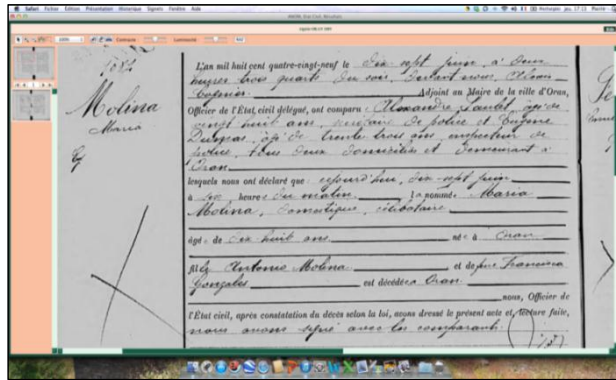 Safari Fichier Édition Présentation Historique Signets Fenêtre Aide
Contraste
Luminosité
Molina
Maria
L'an mil huit cent quatre-vingt-neuf le dix-sept juin, à deux
heures trois quarts du soir, devant nous,
Adjoint au Maire de la ville d'Oran,
Officier de l'État civil délégué, ont comparu Alexandre Loubet, âgé de
vingt huit ans, de police et Eugène
Dumas, âgé de trente trois ans, inspecteur de
police, tous deux domiciliés et demeurant à
Oran
lesquels nous ont déclaré que cejourd'hui, dix-sept juin
à six heures du matin, la nommée Maria
Molina, domestique, célibataire
âgée de dix-huit ans née à Oran
fille Antonio Molina et de feue Francisca
Gonzales est décédée à Oran.
nous, Officier de
l'État civil, après constatation du décès selon la loi, avons dressé le présent acte et, lecture faite,
nous avons signé avec les comparants.